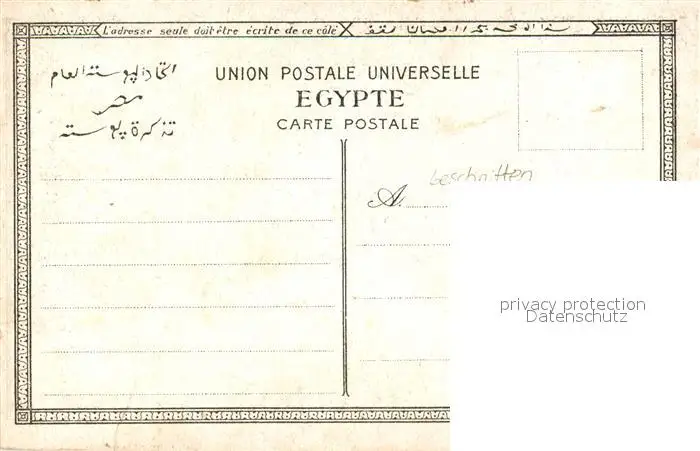 L'adresse seule doit être écrite de ce côté
اتحاد الپوسته العام
مصر
تذكرة پوسته
UNION POSTALE UNIVERSELLE
EGYPTE
CARTE POSTALE
beschnitten
A.
privacy protection
Datenschutz